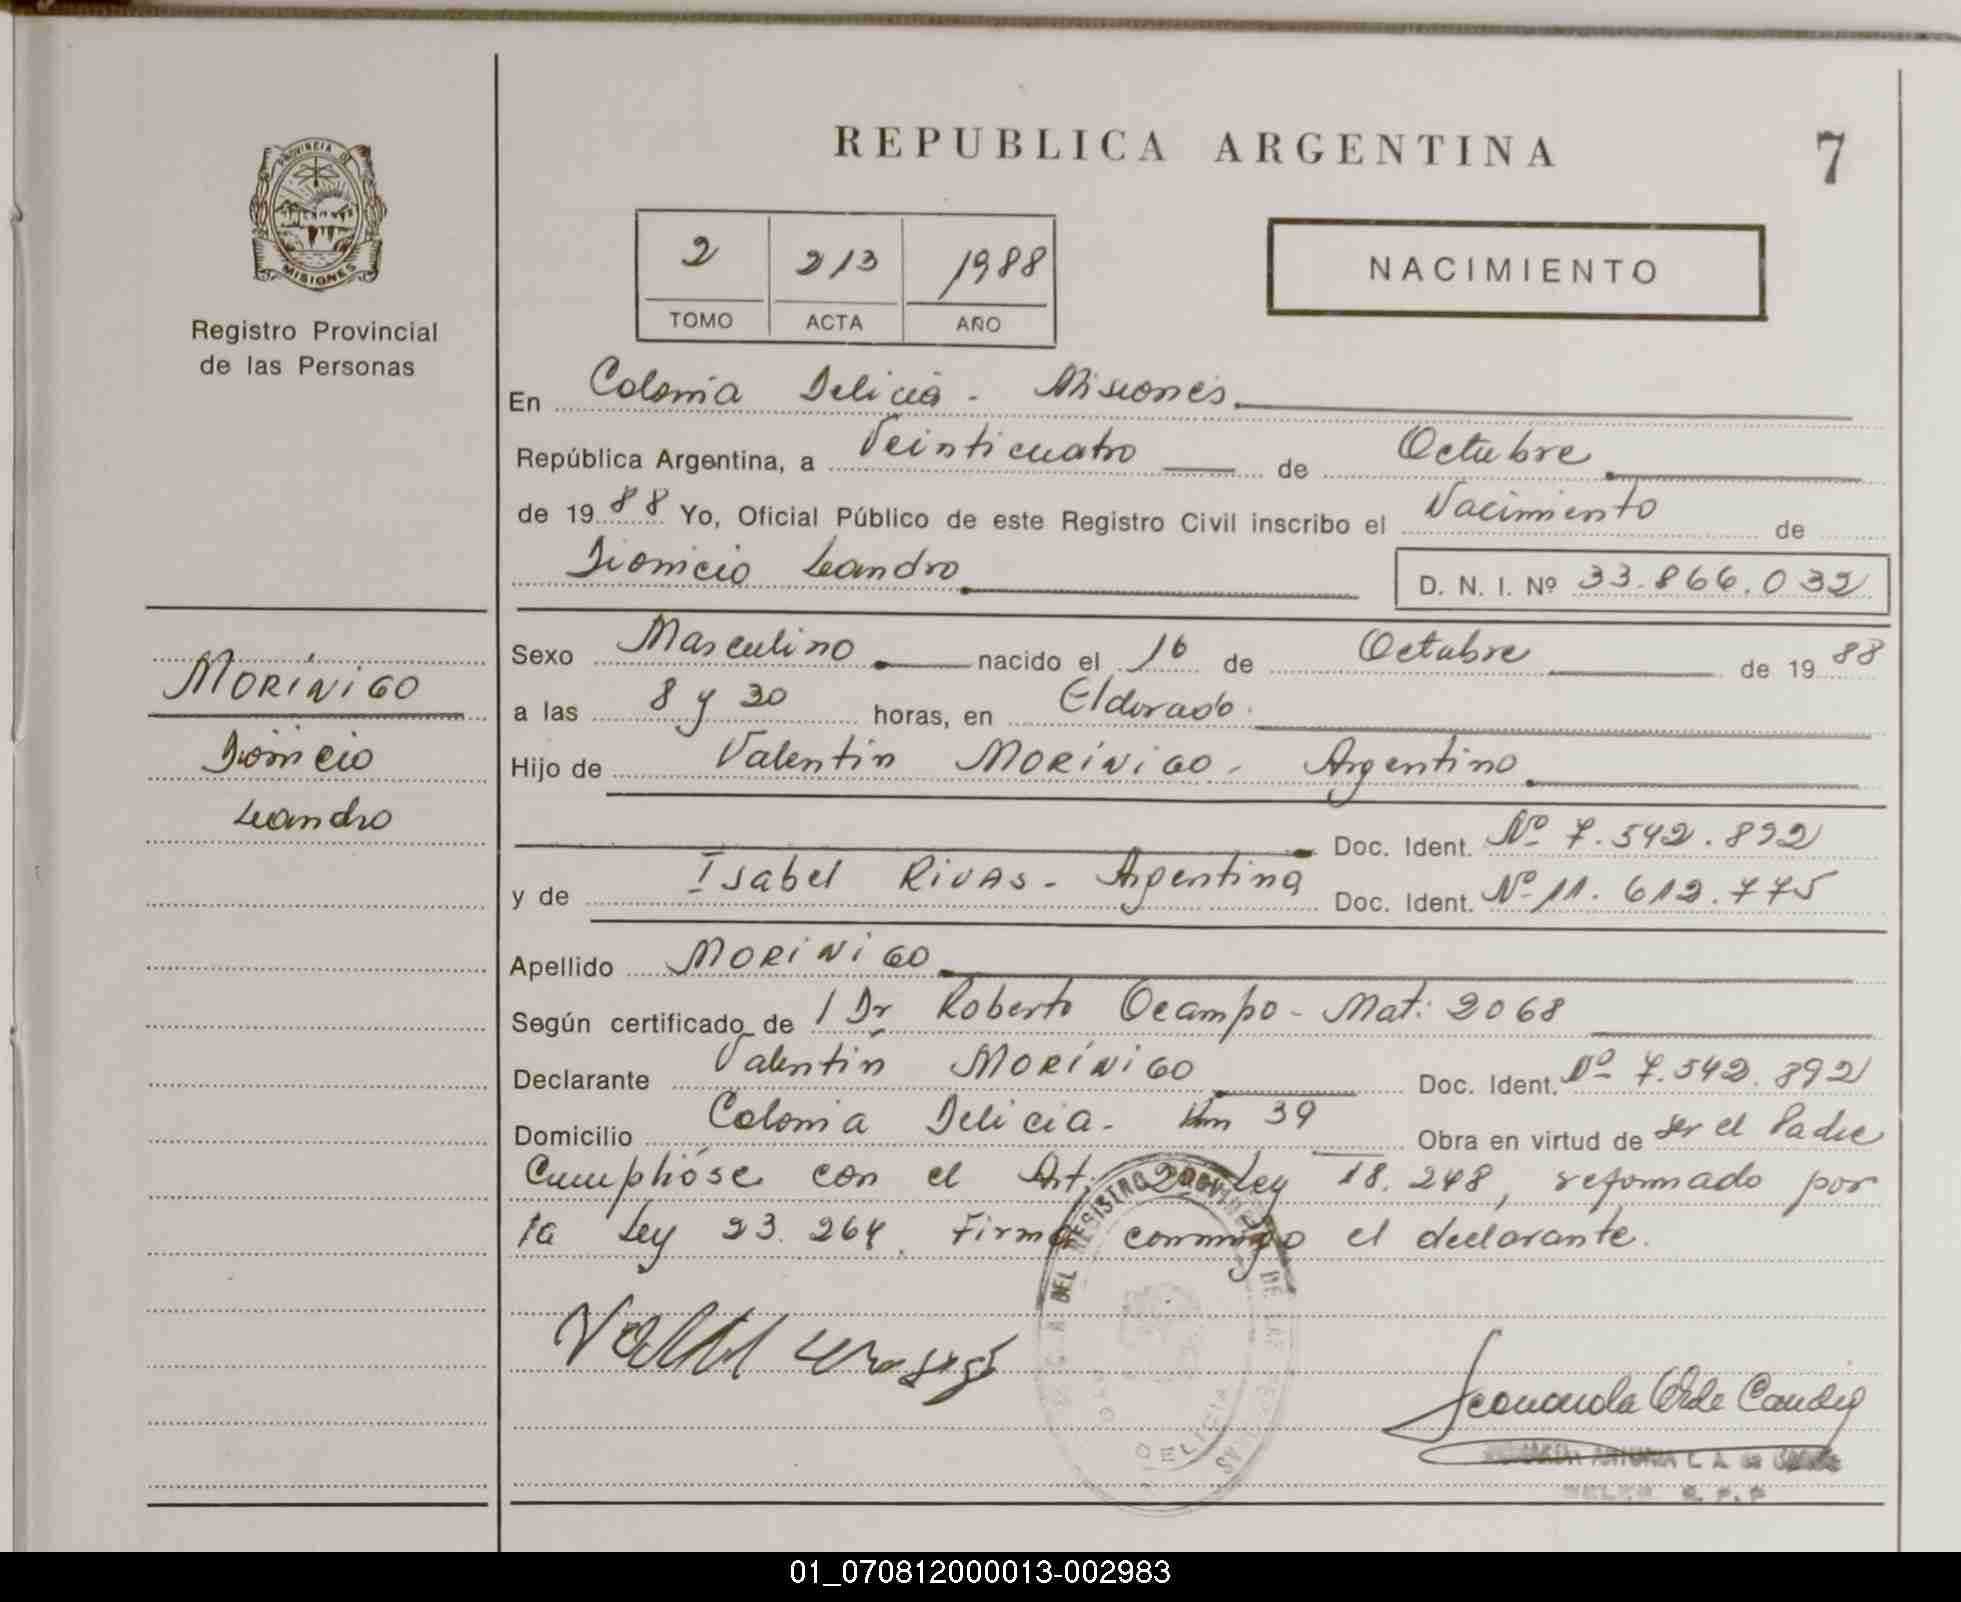 REPUBLICA ARGENTINA
7
PROVINCIA DE
MISIONES
Registro Provincial
de las Personas
2 213 1988
TOMO ACTA AÑO
NACIMIENTO
En Colonia Delicia - Misiones
República Argentina, a Veinticuatro de Octubre
de 19 88 Yo, Oficial Público de este Registro Civil inscribo el Nacimiento de
Dionicio Leandro D. N. I. Nº 33.866.032
MORÍNIGO
Dionicio
Leandro
Sexo Masculino nacido el 16 de Octubre de 19 88
a las 8 y 30 horas, en Eldorado.
Hijo de Valentín MORÍNIGO - Argentino
Doc. Ident. Nº 7.542.892
y de Isabel RIVAS - Argentina Doc. Ident. Nº 11.612.775
Apellido MORINIGO
Según certificado de / Dr Roberto Ocampo - Mat: 2068
Declarante Valentín MORÍNIGO Doc. Ident. Nº 7.542.892
Domicilio Colonia Delicia - Km 39 Obra en virtud de ser el Padre
Cumplióse con el Art. 2º Ley 18.248, reformado por
la Ley 23.264. Firma conmigo el declarante.
DEL REGISTRO PROVINCIAL DE LAS PERSONAS
DELICIA
01_070812000013-002983